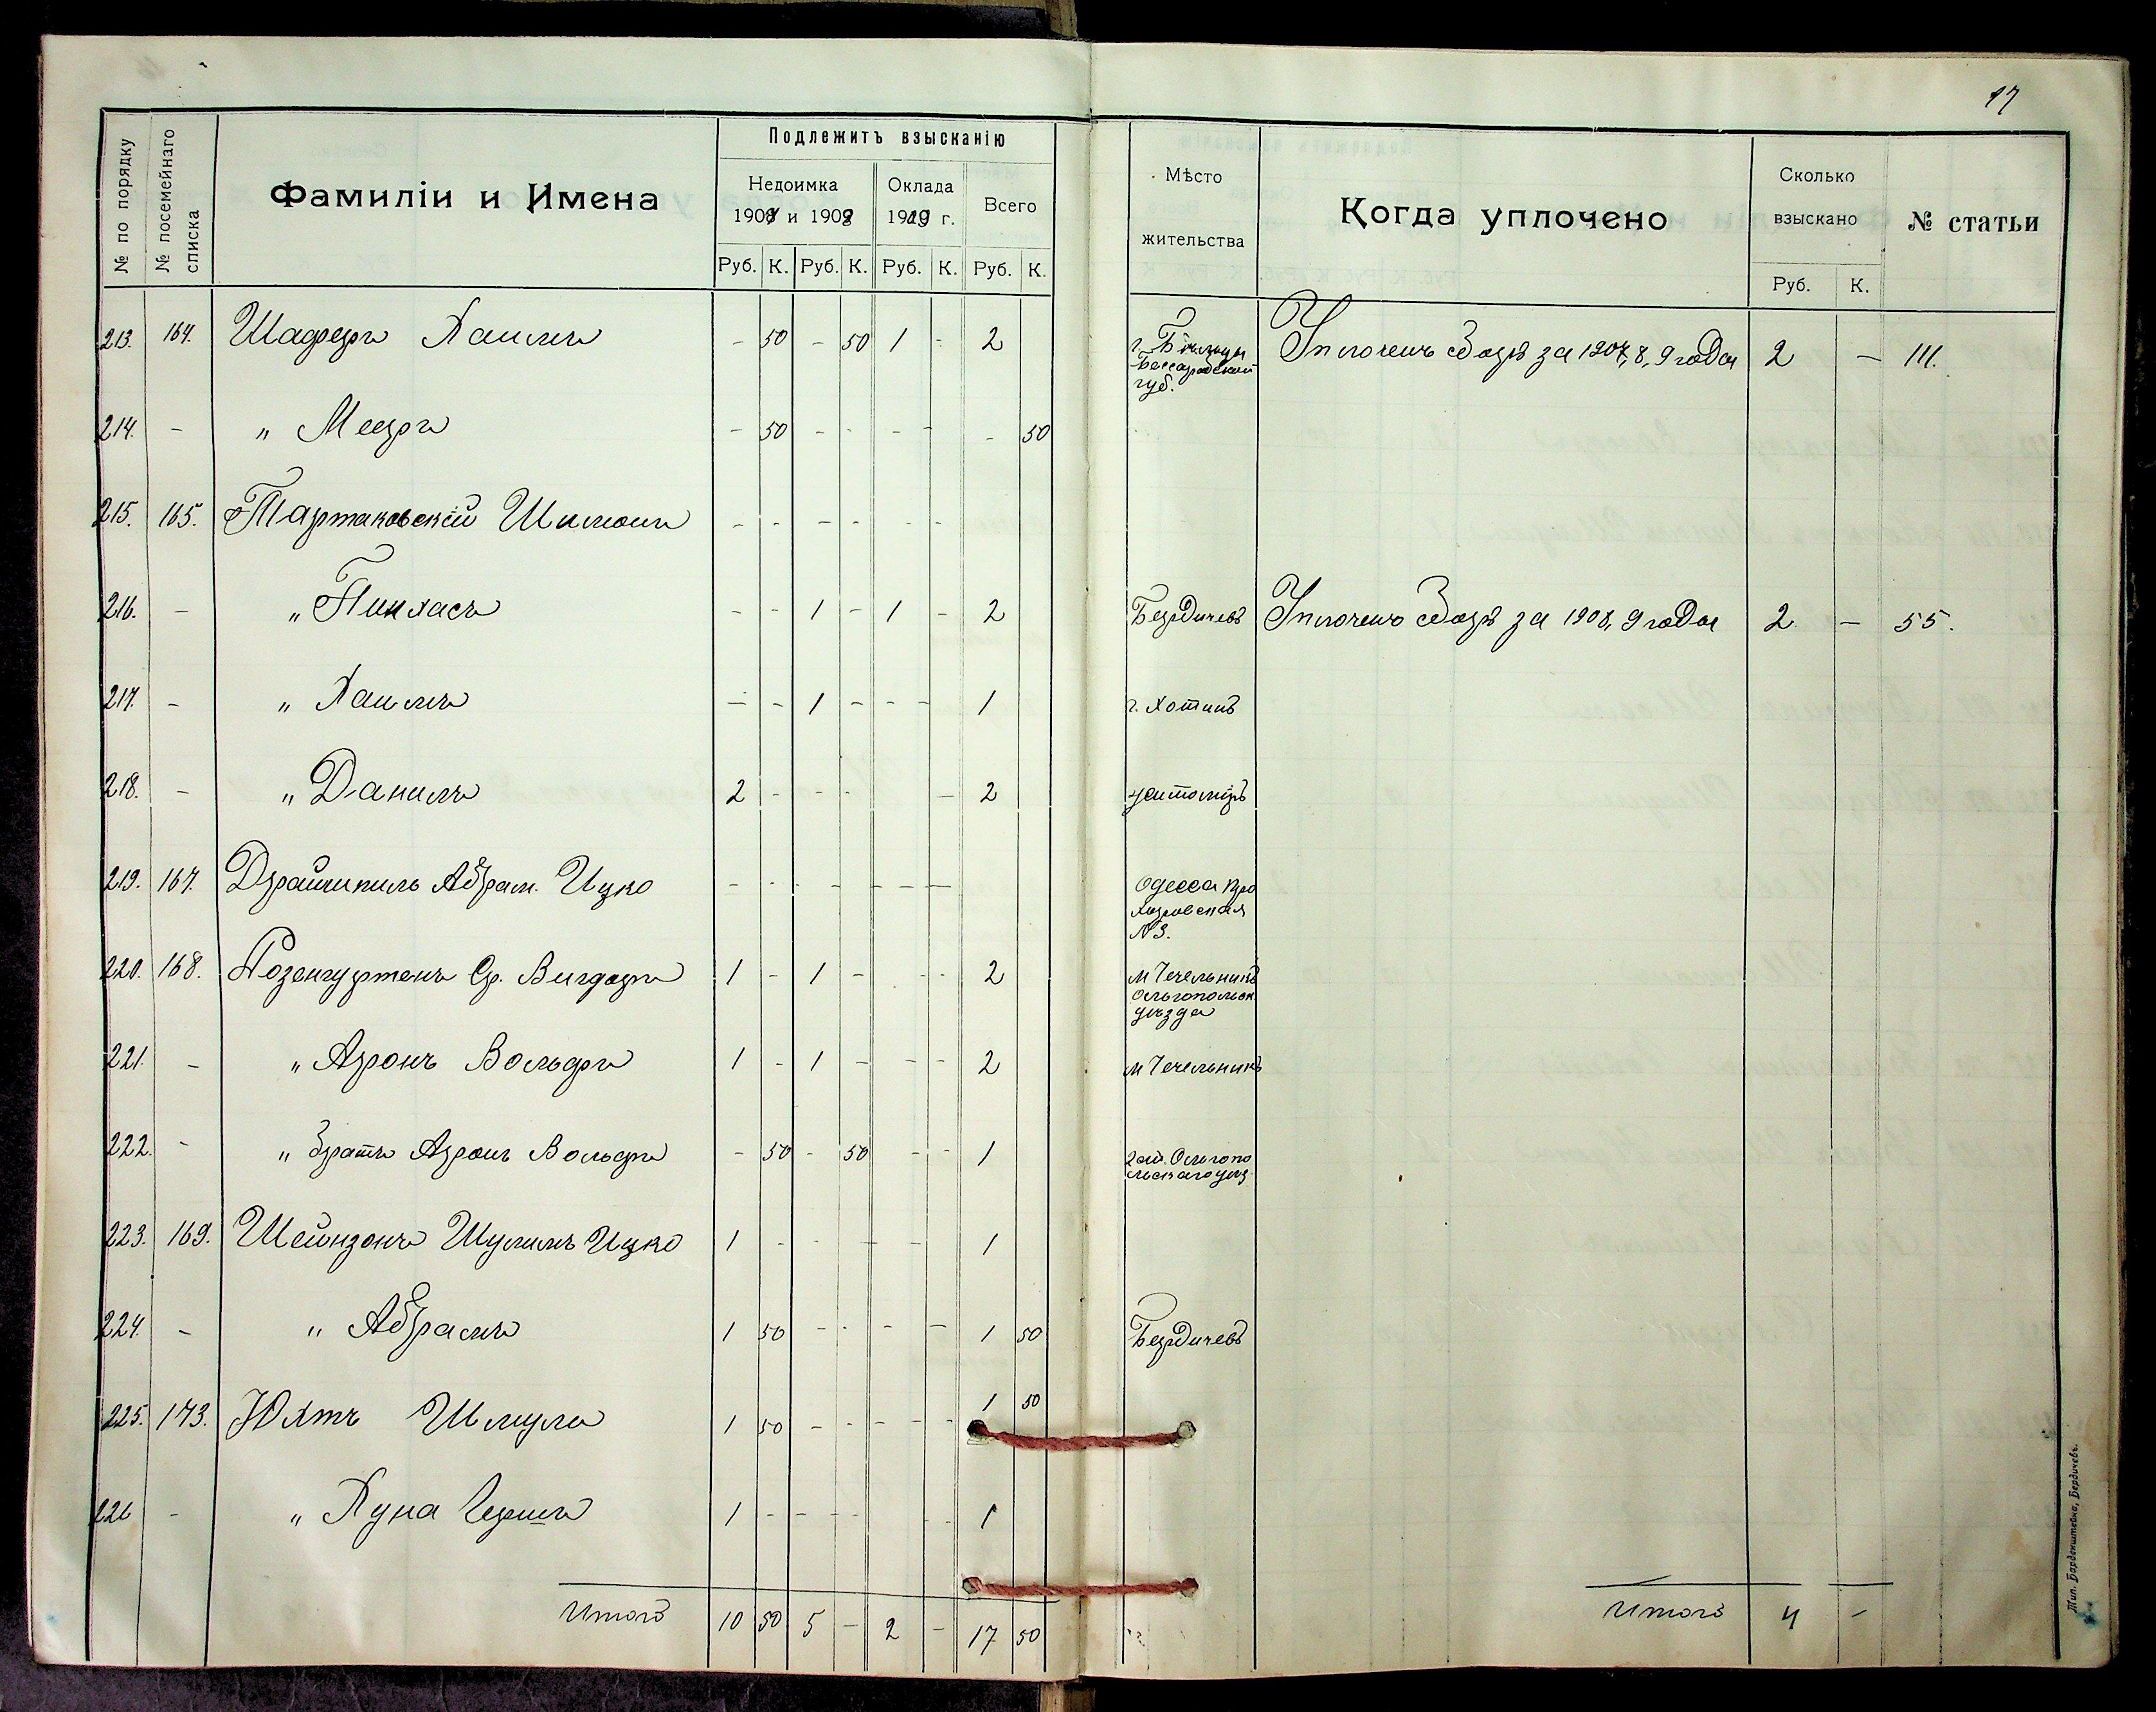 17
№ по порядку
№ посемейнаго списка
Фамиліи и Имена
Подлежитъ взысканію
Недоимка
1907 и 1908
Оклада
1909 г.
Всего
Руб. К. Руб. К. Руб. К. Руб. К.
Мѣсто
жительства
Когда уплочено
Сколько
взыскано
Руб. К.
№ статьи
213. 164. Шаферъ Хаимъ - 50 - 50 1 - 2 г. Бѣльцы Уплоченъ сборъ за 1907, 8, 9 годы 2 - 111.
Бессарабской
губ.
214. - " Мееръ - 50 - - - - - 50
215. 165. Тартаковскій Шимонъ - - - - - -
216. - " Пинхасъ - - 1 - 1 - 2 Бердичевъ Уплочено сборъ за 1908, 9 годы 2 - 55.
217. - " Хаимъ - - 1 - - - 1 г. Хотинъ
218. - " Данилъ 2 - - - - 2 Житоміръ
219. 167. Драйшпиль Абрам. Ицко - - - - - - - Одесса Про
хоровская
№ 3.
220. 168. Розенгуртенъ Ср. Вигдоръ 1 - 1 - - - 2 м Чечельникъ
Ольгопольск.
уѣзда
221. - " Аронъ Вольфъ 1 - 1 - - - 2 м Чечельникъ
222. - " братъ Аронъ Вольфъ - 50 - 50 - - 1 Ольгопо
льскаго уѣз.
223. 169. Шейнзонъ Шулимъ Ицко 1 - - - - 1
224. - " Абрамъ 1 50 - - - - 1 50 Бердичевъ
225. 173. Юхтъ Шмуль 1 50 - - - - 1 50
226 - " Хуна Гершъ 1 - - - - - - 1
Итого 10 50 5 - 2 - 17 50
Итого 4 -
Тип. Барденштейна, Бердичевъ.